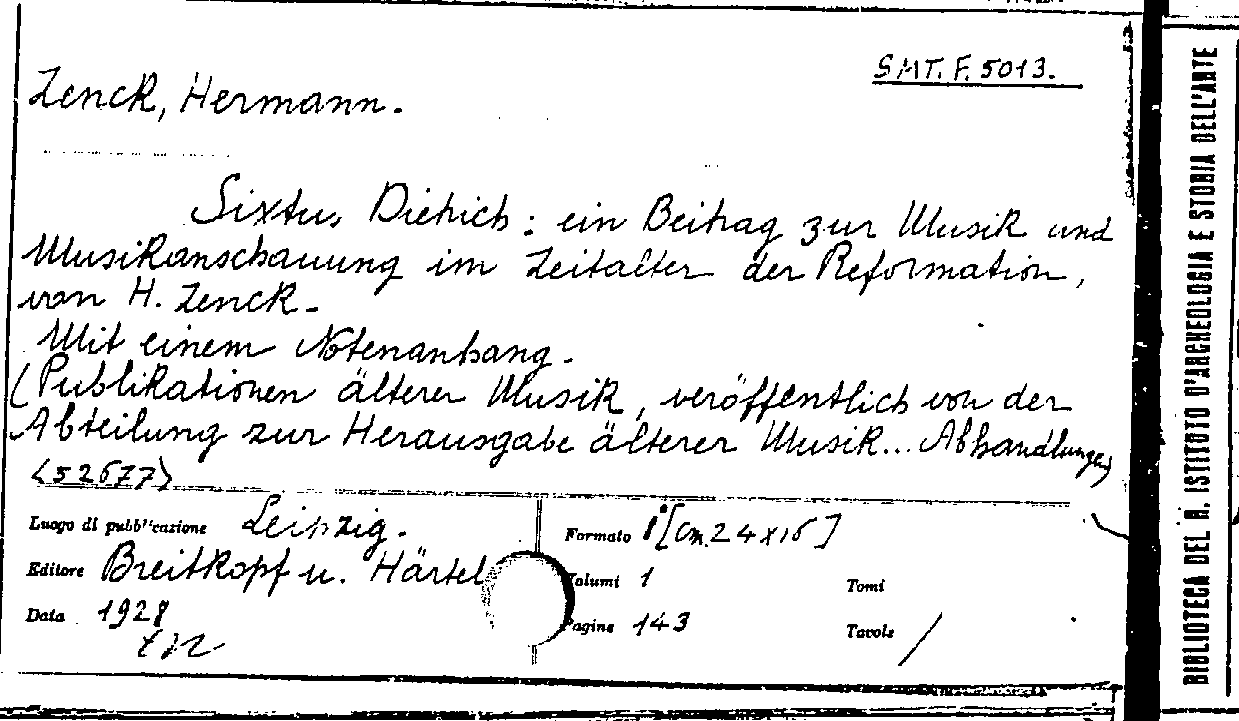 SMT. F. 5013.
Zenck, Hermann.
Sixtus Dietrich : ein Beitrag zur Musik und
Musikanschauung im Zeitalter der Reformation,
von H. Zenck.
Mit einem Notenanhang.
(Publikationen älterer Musik, veröffentlich von der
Abteilung zur Herausgabe älterer Musik... Abhandlungen)
(52677)
Luogo di pubblicazione Leipzig.
Formato [Cm. 24x16]
Editore Breitkopf u. Härtel
Volumi 1
Tomi
Data 1928
Pagine 143
Tavole /
BIBLIOTECA DEL R. ISTITUTO D'ARCHEOLOGIA E STORIA DELL'ARTE